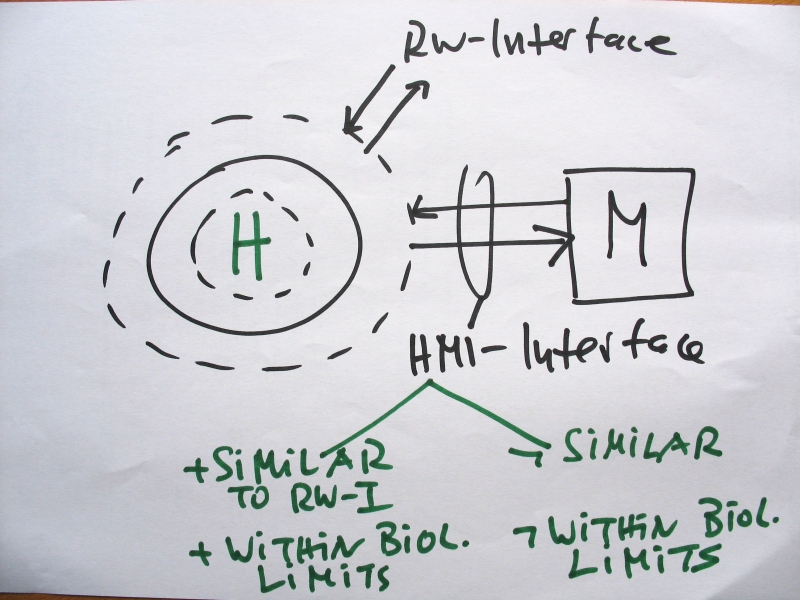 RW-Interface
H
M
HMI-Interface
+ SiMiLAR
TO RW-I
+ WiTHiN BiOL.
LiMiTS
¬ SiMiLAR
¬ WiTHiN BiOL.
LiMiTS